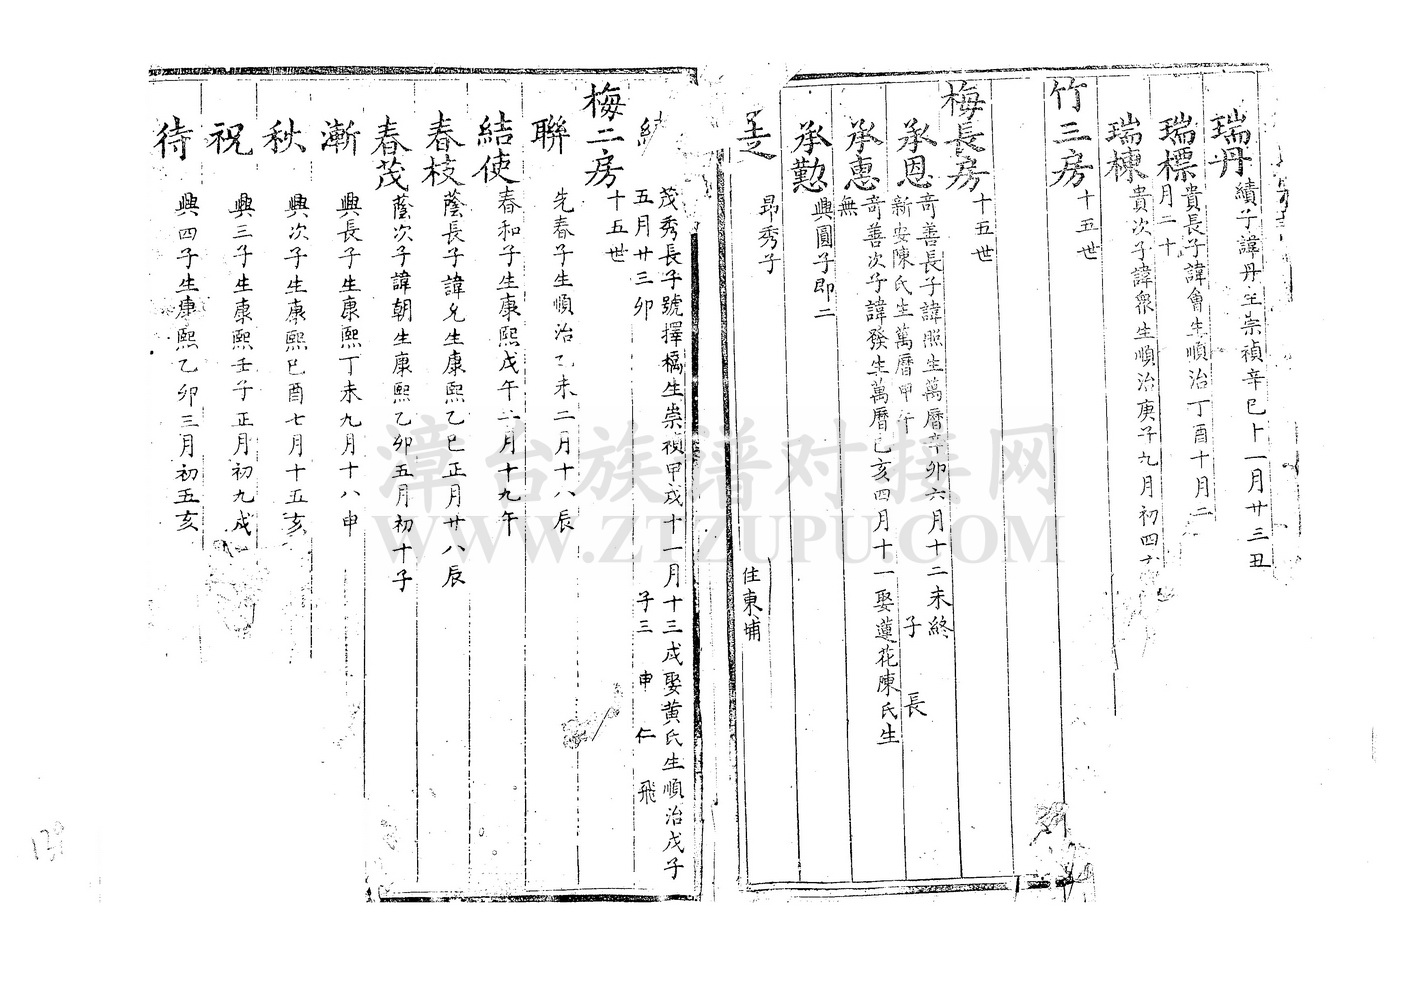 瑞丹 績子諱丹生崇禎辛巳十一月廿三丑
瑞標 貴長子諱會生順治丁酉十月二
月二十
瑞棟 貴次子諱衆生順治庚子九月初四
竹三房 十五世
梅長房 十五世
承恩 奇善長子諱照生萬曆辛卯六月十二未終
新安陳氏生萬曆甲午 子 長
承惠 奇善次子諱發生萬曆己亥四月十一娶蓮花陳氏生
無
承勤 興圓子即二
昂秀子 住東埔
茂秀長子號擇橋生崇禎甲戌十一月十三戌娶黄氏生順治戊子
五月廿三卯 子三 申 仁 飛
梅二房 十五世
聯 先春子生順治乙未二月十八辰
結使 春和子生康熙戊午二月十九午
春枝 蔭長子諱允生康熙乙巳正月廿八辰
春茂 蔭次子諱朝生康熙乙卯五月初十子
漸 興長子生康熙丁未九月十八申
秋 興次子生康熙己酉七月十五亥
祝 興三子生康熙壬子正月初九戌
待 興四子生康熙乙卯三月初五亥
漳台族谱对接网
WWW.ZTZUPU.COM
139